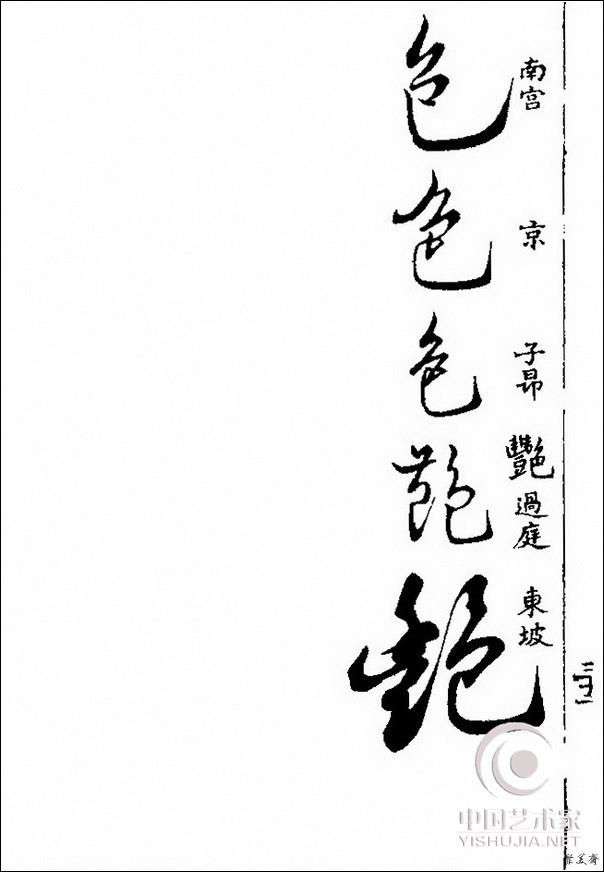 色
南宫
色
京
色
子昂
艷
艷
過庭
艷
東坡
中国艺术家
YISHUJIA.NET